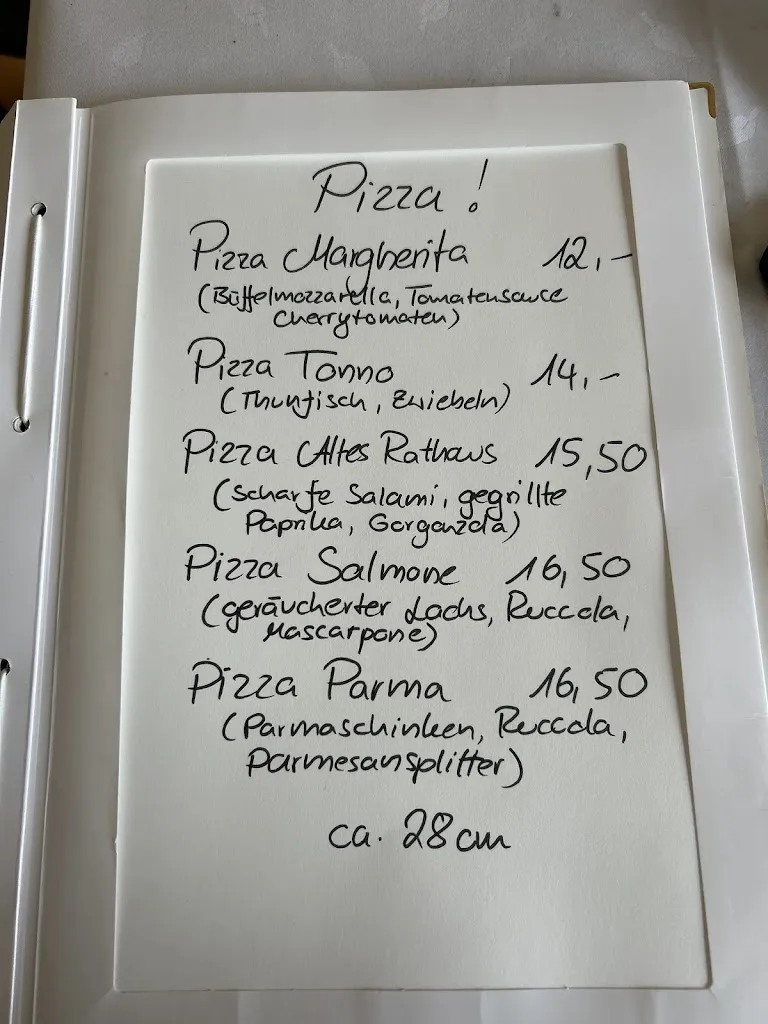 Pizza!
Pizza Margherita 12,-
(Büffelmozzarella, Tomatensauce
Cherrytomaten)
Pizza Tonno 14,-
(Thunfisch, Zwiebeln)
Pizza Altes Rathaus 15,50
(scharfe Salami, gegrillte
Paprika, Gorgonzola)
Pizza Salmone 16,50
(geräucherter Lachs, Ruccola,
Mascarpone)
Pizza Parma 16,50
(Parmaschinken, Ruccola,
Parmesansplitter)
ca. 28cm